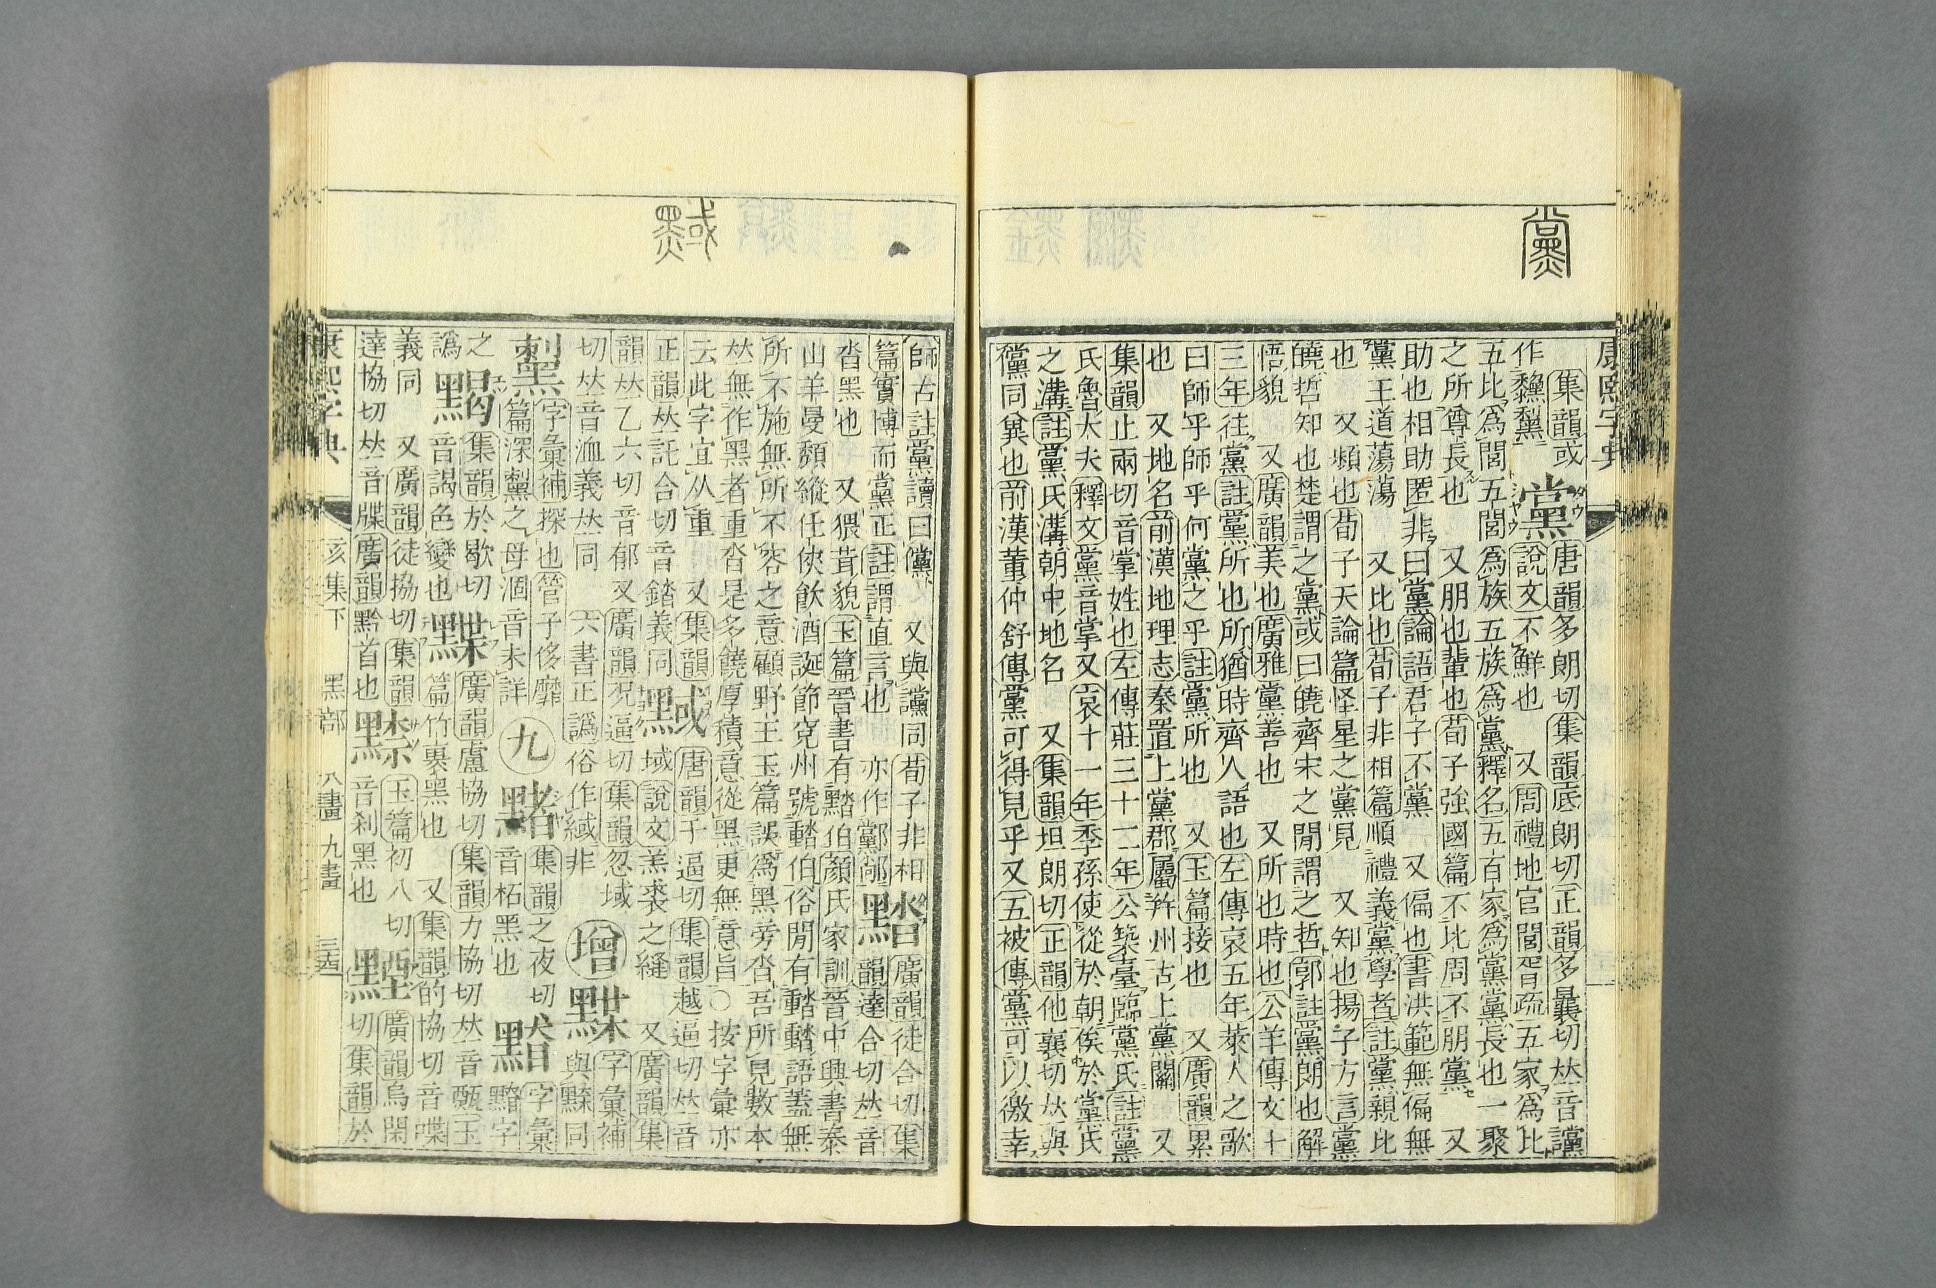 康熙字典
集韻或
作黱䵢
黨
唐韻多朗切集韻底朗切正韻多曩切𠀤音讜
說文不鮮也 又周禮地官閭胥疏五家爲比
五比爲閭五閭爲族五族爲黨釋名五百家爲黨黨長也一聚
之所尊長也 又朋也輩也荀子強國篇不比周不朋黨 又
助也相助匿非曰黨論語君子不黨 又偏也書洪範無偏無
黨王道蕩蕩 又比也荀子非相篇順禮義黨學者註黨親比
也 又頻也荀子天論篇怪星之黨見 又知也揚子方言黨
曉哲知也楚謂之黨或曰曉齊宋之閒謂之哲郭註黨朗也解
悟貌 又廣韻美也廣雅黨善也 又所也時也公羊傳文十
三年往黨註黨所也所猶時齊人語也左傳哀五年萊人之歌
曰師乎師乎何黨之乎註黨所也 又玉篇接也 又廣韻累
也 又地名前漢地理志秦置上黨郡屬幷州古上黨關 又
集韻止兩切音掌姓也左傳莊三十二年公築臺臨黨氏註黨
氏魯大夫釋文黨音掌又哀十一年季孫使從於朝俟於黨氏
之溝註黨氏溝朝中地名 又集韻坦朗切正韻他襄切𠀤與
儻同兾也前漢董仲舒傳黨可得見乎又五被傳黨可以徼幸
師古註黨讀曰儻 又與讜同荀子非相
篇實博而黨正註謂直言也 亦作鄺䣊
䵬
廣韻徒合切集
韻達合切𠀤音
沓黑也 又猥茸貌玉篇晉書有䵬伯顏氏家訓晉中興書泰
山羊曼頹縱任俠飮酒誕節兗州號䵬伯俗閒有䵬䵬語蓋無
所不施無所不容之意顧野王玉篇誤爲黑旁沓吾所見數本
𠀤無作黑者重沓是多饒厚積意從黑更無意旨○按字彙亦
云此字宜从重 又集韻
正韻𠀤託合切音錔義同
黬
唐韻于逼切集韻越逼切𠀤音
域說文羔裘之縫 又廣韻集
韻𠀤乙六切音郁 又廣韻況逼切集韻忽域
切𠀤音洫義𠀤同 六書正譌俗作緎非
增
䵢
字彙補
與䵢同
𪑅
字彙補探也管子侈靡
篇深𪑅之母涸音未詳
九
䵭
集韻之夜切
音柘黑也
䵳
字彙
黯字
之
譌
䵷
集韻於歇切
音謁色變也
䵢
廣韻盧協切集韻力協切𠀤音甄玉
篇竹裏黑也 又集韻的協切音喋
義同 又廣韻徒協切集韻
達協切𠀤音牒廣韻黔首也
䵵
玉篇初八切
音刹黑也
黫
廣韻烏閑
切集韻於
康熙字典
亥集下 黑部 八畫 九畫 三四